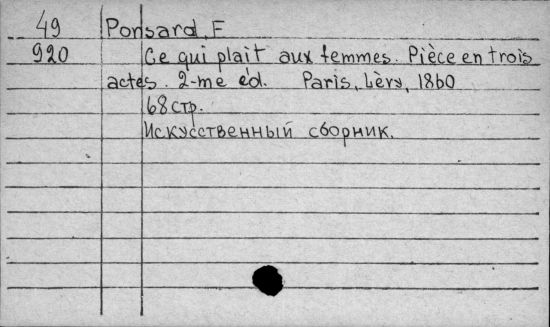 49 Ponsard, F
920 Ce qui plait aux femmes. Pièce en trois
actes. 2-me éd. Paris, Lèvy, 1860
68 стр.
Искусственный сборник.